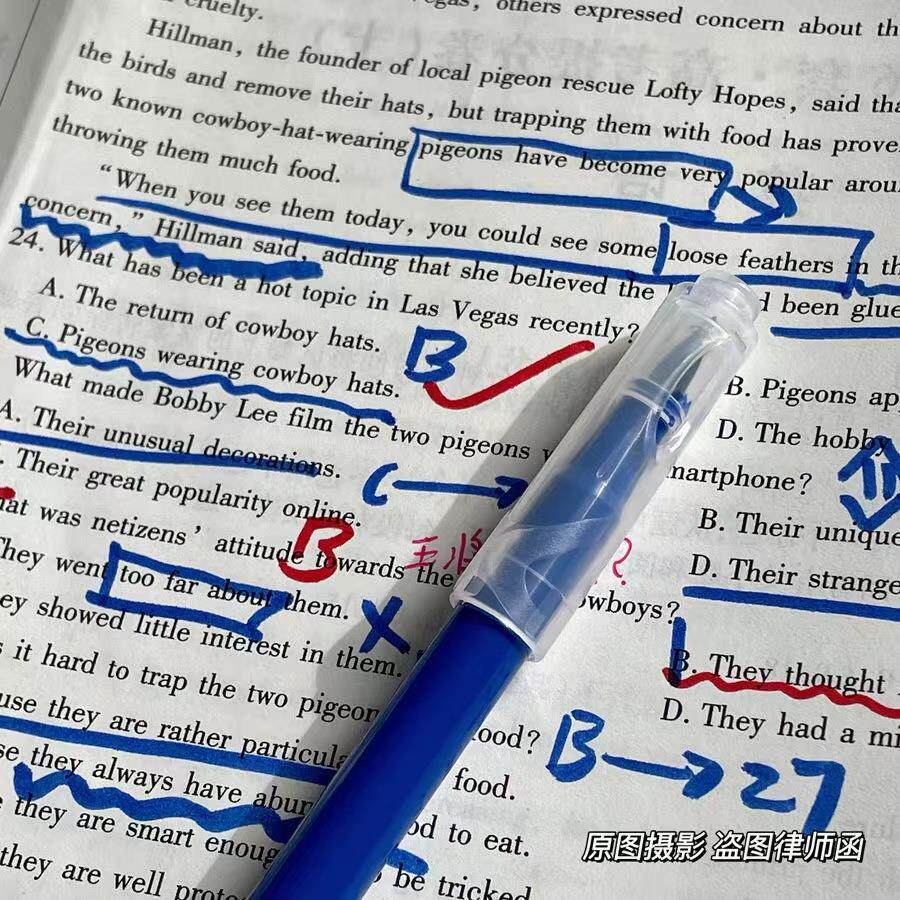 cruelty.
others expressed concern about th
Hillman, the founder of local pigeon rescue Lofty Hopes, said tha
the birds and remove their hats, but trapping them with food has prove
two known cowboy-hat-wearing pigeons have become very popular arou
throwing them much food.
"When you see them today, you could see some loose feathers in th
concern," Hillman said, adding that she believed the
d been glue
24. What has been a hot topic in Las Vegas recently?
A. The return of cowboy hats.
B. Pigeons ap
C. Pigeons wearing cowboy hats.
B
D. The hobby
What made Bobby Lee film the two pigeons
martphone?
A. Their unusual decorations.
B. Their unique
. Their great popularity online.
C
D. Their strange
hat was netizens' attitude towards the
owboys?
B
?
They went too far about them.
X
B. They thought
ey showed little interest in them.
D. They had a mi
s it hard to trap the two pigeon
ood?
B → 27
use they are rather particula
food.
se they always have abun
od to eat.
e they are smart enoug
be tricked
they are well prote
原图摄影 盗图律师函